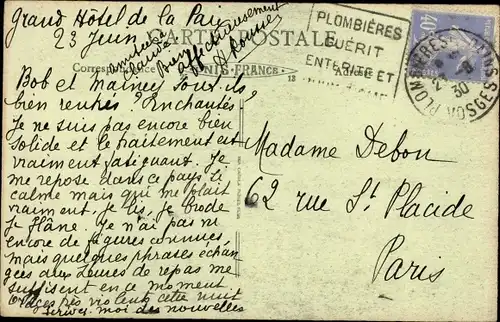 Grand Hôtel de la Paix
23 Juin
Amitiés à
Claude
Bien
affectueusement
CARTE POSTALE
Correspondance
UNIS-FRANCE
Adresse
PLOMBIÈRES
GUÉRIT
ENTÉRITE ET
PLOMBIÈRES
VOSGES
30
40c
Bob et Maincy sont-ils
bien rentrés? Enchantés?
Je ne suis pas encore bien
solide et le traitement est
vraiment fatigant. Je
me repose dans ce pays si
calme mais qui me plait
vraiment. Je lis, je brode
je flâne. Je n'ai pas vu
encore de figures connues,
mais quelques phrases échan-
gées aux heures de repas me
suffisent en ce moment.
Orages très violents cette nuit
Ecrivez-moi des nouvelles
Madame Debon
62 rue St Placide
Paris